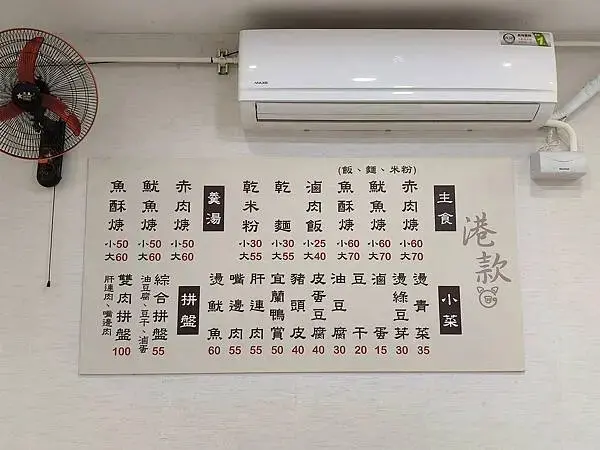 港款
(飯、麵、米粉)
主食
赤肉焿 小60 大70
魷魚焿 小60 大70
魚酥焿 小60 大70
滷肉飯 小25 大40
乾麵 小30 大55
乾米粉 小30 大55
羹湯
赤肉焿 小50 大60
魷魚焿 小50 大60
魚酥焿 小50 大60
小菜
燙青菜 35
燙綠豆芽 30
滷蛋 15
豆干 20
油豆腐 30
皮蛋豆腐 40
豬頭皮 40
宜蘭鴨賞 50
肝連肉 55
嘴邊肉 55
燙魷魚 60
拼盤
綜合拼盤 55
油豆腐、豆干、滷蛋
雙肉拼盤 100
肝連肉、嘴邊肉